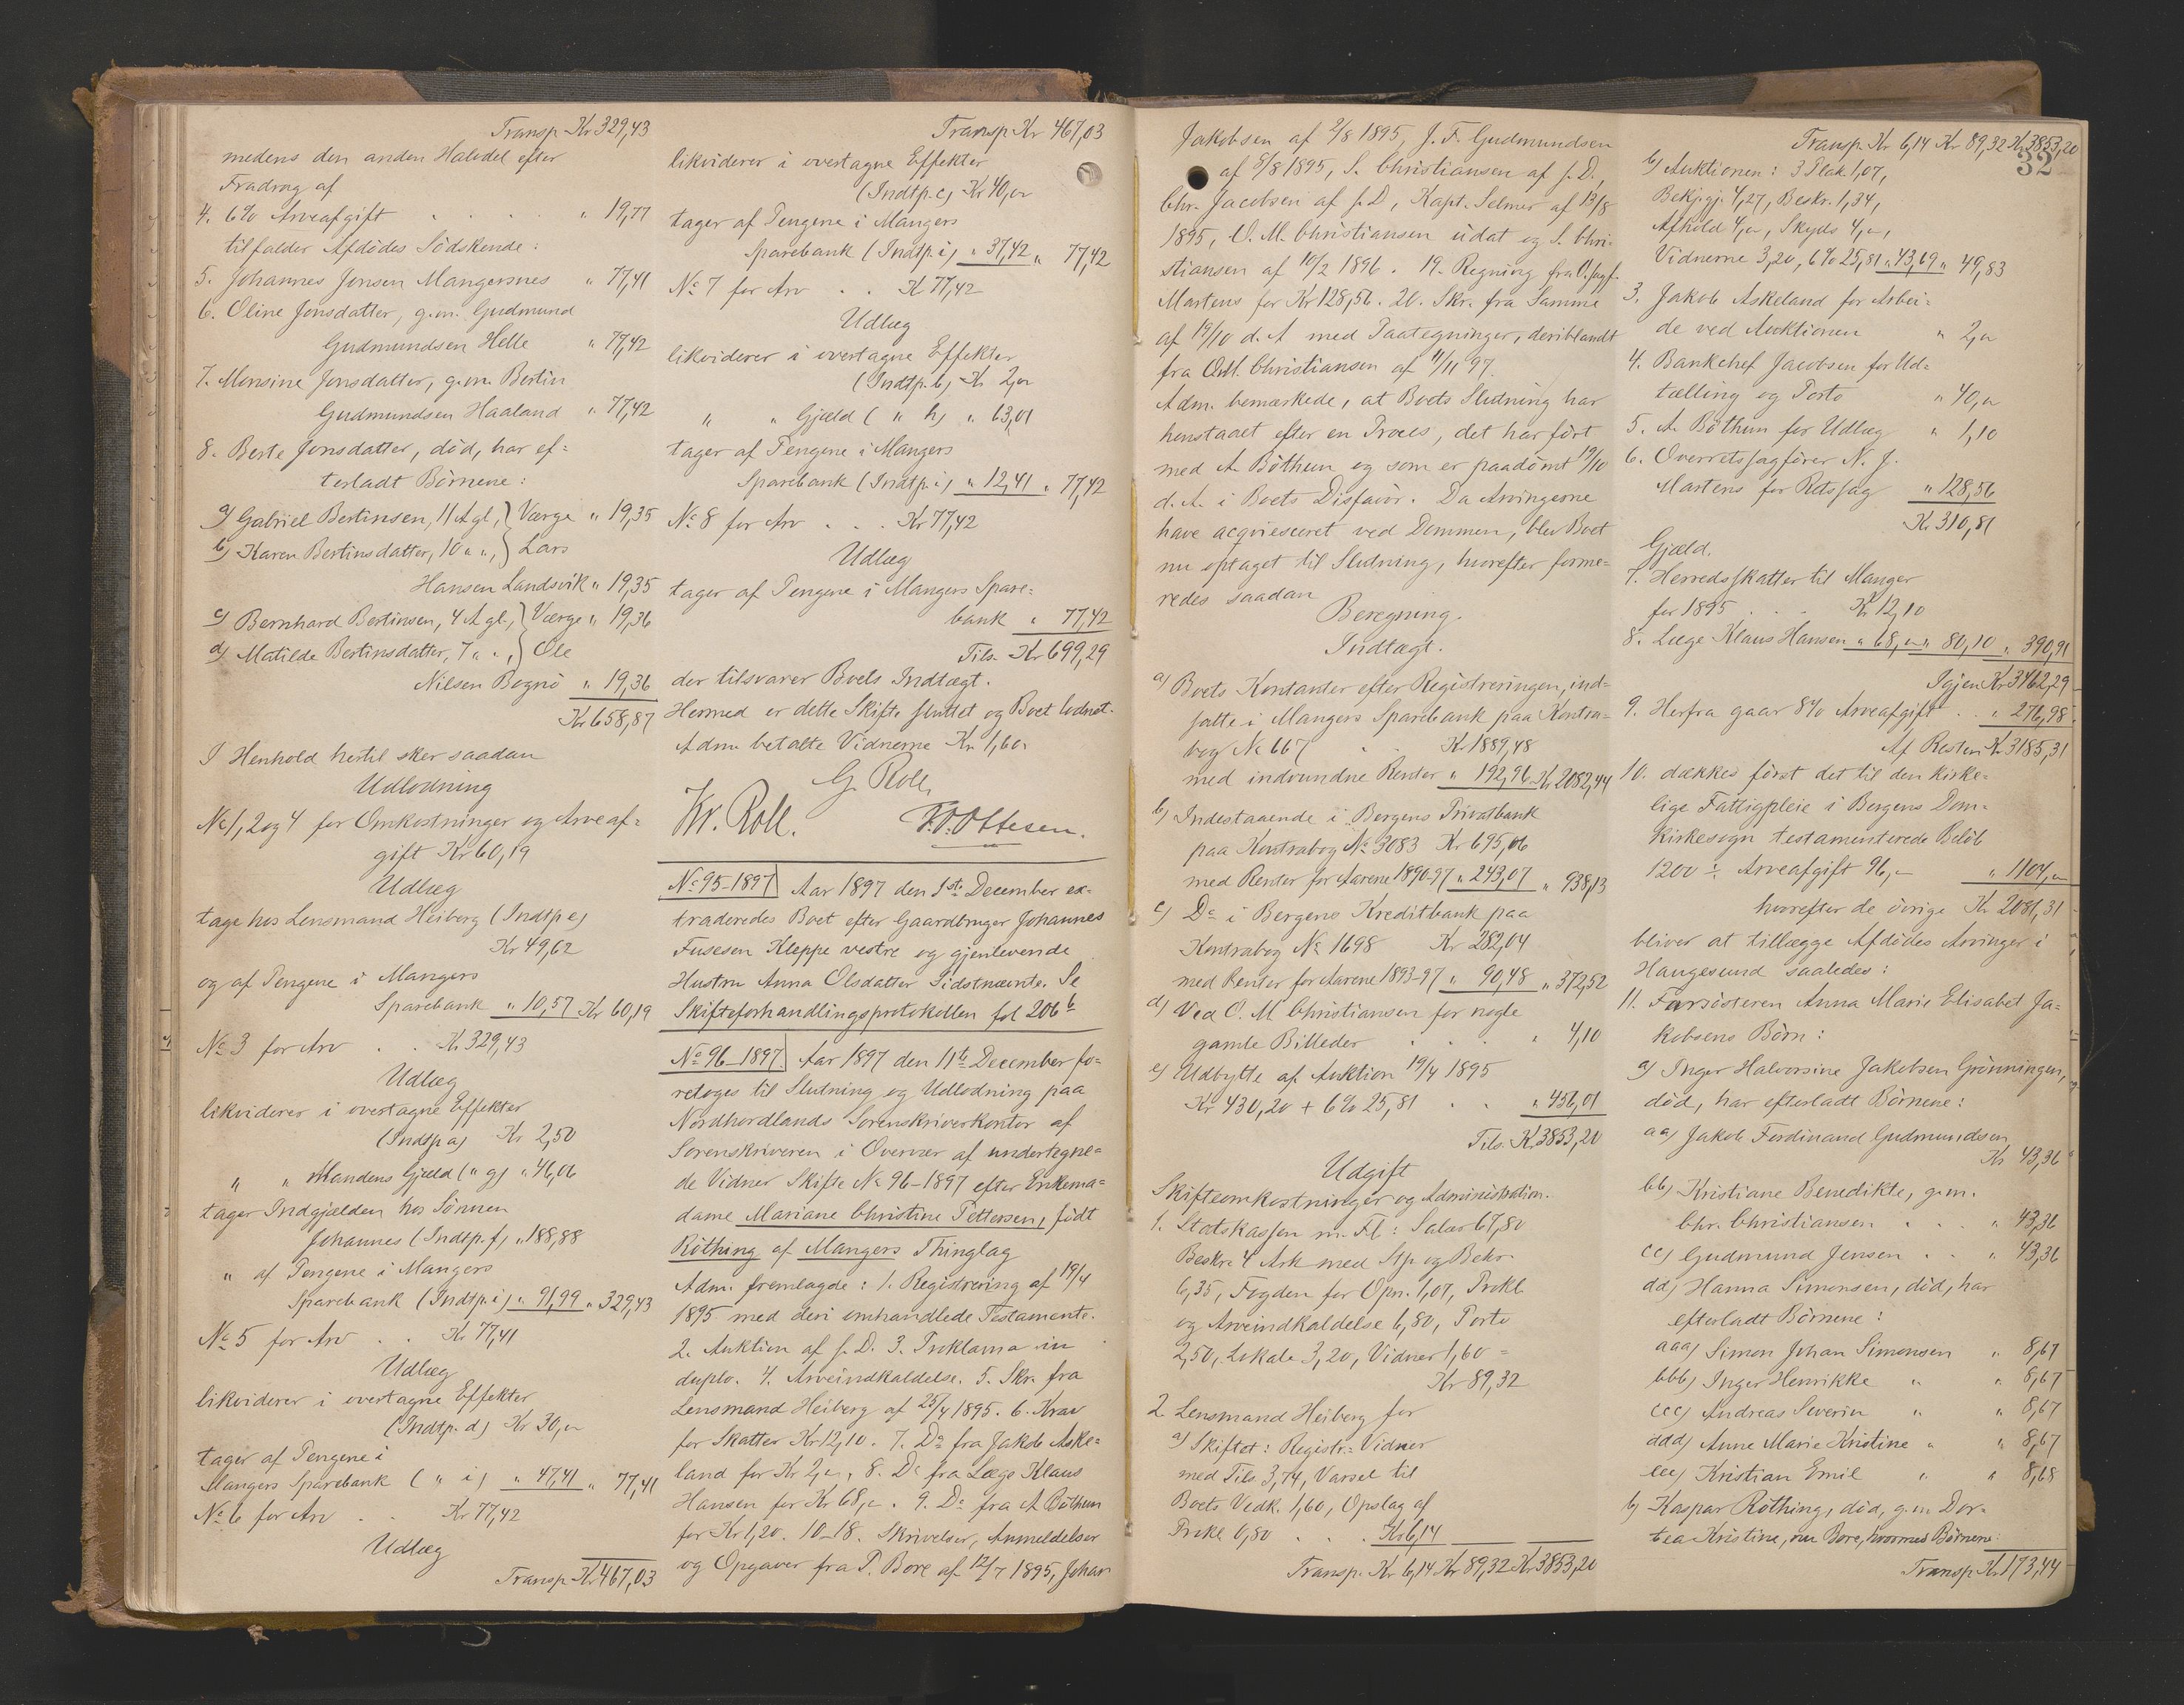 Transp. Kr 329,43
medens den anden Halvdel efter
Fradrag af
4. 6% Arveafgift . . . . " 19,77
tilfalder Afdødes Södskende:
5. Johannes Jonsen Mangersnes " 77,41
6. Oline Jonsdatter, g.m. Gudmund
Gudmundsen Helle " 77,42
7. Monsine Jonsdatter, g.m. Bertin
Gudmundsen Haaland " 77,42
8. Berte Jonsdatter, död, har ef=
terladt Börnene:
a) Gabriel Bertinsen, 11 A gl, } Værge " 19,35
b) Karen Bertinsdatter, 10 " ", } Lars
Hansen Landsvik " 19,35
c) Bernhard Bertinsen, 4 A gl, } Værge " 19,36
d) Matilde Bertinsdatter, 7 " ", } Ole
Nilsen Bognö " 19,36
Kr 658,87
I Henhold hertil sker saadan
Udlodning
No 1, 2 og 4 for Omkostninger og Arveaf=
gift Kr 60,19
Udlæg
tage hos Lensmand Heiberg (Indtp e)
Kr 49,62
og af Pengene i Mangers
Sparebank " 10,57 Kr 60,19
No 3 for Arv . . Kr 329,43
Udlæg
likviderer i overtagne Effekter
(Indtp a) Kr 2,50
" " Mandens Gjæld (" g) " 46,06
tager Indgjælden hos Sönnen
Johannes (Indtp. f) " 188,88
" af Pengene i Mangers
Sparebank (Indtp. i) " 91,99 " 329,43
No 5 for Arv . . Kr 77,41
Udlæg
likviderer i overtagne Effekter
(Indtp. d) Kr 30,"
tager af Pengene i
Mangers Sparebank ( " i) " 47,41 " 77,41
No 6 for Arv . . Kr 77,42
Udlæg
Transp. Kr 467,03
Transp Kr 467,03
likviderer i overtagne Effekter
(Indtp. c) Kr 40,"
tager af Pengene i Mangers
Sparebank (Indtp. i) " 37,42 " 77,42
No 7 for Arv . . Kr 77,42
Udlæg
likviderer i overtagne Effekter
(Indtp. b) Kr 2,"
" " Gjæld ( " h) " 63,01
tager af Pengene i Mangers
Sparebank (Indtp. i) " 12,41 " 77,42
No 8 for Arv . . . Kr 77,42
Udlæg
tager af Pengene i Mangers Spare=
bank " 77,42
Tils. Kr 699,29
der tilsvarer Boets Indtægt.
Hermed er dette Skifte sluttet og Boet lodnet.
Adm. betalte Vidnerne Kr 1,60.
G. Roll,
Kr. Roll. F.O. Ottesen.
No 95-1897 Aar 1897 den 1ste December ex=
traderedes Boet efter Gaardbruger Johannes
Fusesen Kleppe vestre og gjenlevende
Hustru Anna Olsdatter Sidstnævnte. Se
Skifteforhandlingsprotokollen fol 206 b
No 96-1897. Aar 1897 den 11te December fo=
retoges til Slutning og Udlodning paa
Nordhordlands Sorenskriverkontor af
Sorenskriveren i Overvær af undertegne=
de Vidner Skifte No 96-1897 efter Enkema=
dame Mariane Christine Pettersen, född
Röthing af Mangers Thinglag
Adm. fremlagde: 1. Registrering af 19/4
1895 med deri omhandlede Testamente.
2. Auktion af s. D. 3. Proklama in
duplo. 4. Arveindkaldelse. 5. Skr. fra
Lensmand Heiberg af 25/4 1895. 6. Krav
for Skatter Kr 12,10. 7. Do fra Jakob Aske=
land for Kr 2,". 8. Do fra Læge Klaus
Hansen for Kr 68,". 9. Do fra A Böthun
for Kr 1,20. 10-18. Skrivelser, Anmeldelser
og Opgaver fra P. Bore af 12/7 1895, Johan
Jakobsen af 2/8 1895, J. F. Gudmundsen
af 8/8 1895, S. Christiansen af s. D.,
Chr. Jacobsen af s. D, Kapt. Selmer af 13/8
1895, O. M. Christiansen udat og S. Chri=
stiansen af 10/2 1896. 19. Regning fra O.sagf.
Martens for Kr 128,56. 20. Skr. fra Samme
af 19/10 d. A med Paategninger, deriblandt
fra O.M. Christiansen af 11/11 97.
Adm. bemærkede, at Boets Slutning har
henstaaet efter en Proces, det har fört
med A. Böthun og som er paadömt 19/10
d. A. i Boets Disfavör. Da Arvingerne
have acqviesceret ved Dommen, blev Boet
nu optaget til Slutning, hvorefter forme=
redes saadan
Beregning.
Indtægt.
a) Boets Kontanter efter Registreringen, ind=
satte i Mangers Sparebank paa Kontra=
bog No 667 . . Kr 1889,48
med indvundne Renter " 192,96 Kr 2082,44
b) Indestaaende i Bergens Privatbank
paa Kontrabog No 3083 Kr 695,06
med Renter for Aarene 1890-97 " 243,07 " 938,13
c) Do i Bergens Kreditbank paa
Kontrabog No 1698 Kr 282,04
med Renter for Aarene 1893-97 " 90,48 " 372,52
d) Ved O. M Christiansen for nogle
gamle Billeder . . . . " 4,10
e) Udbytte af Auktion 19/4 1895
Kr 430,20 + 6% 25,81 . . " 456,01
Tils. Kr 3853,20
Udgift
Skifteomkostninger og Administration.
1. Statskassen m. Fl: Salær 67,80
Beskr. 4 Ark med Stp og Bekr.
6,35, Fogden for Opn. 1,07, Prokl.
og Arveindkaldelse 6,80, Porto
2,50, Lokale 3,20, Vidner 1,60 =
Kr 89,32
2. Lensmand Heiberg for
a) Skiftet: Registr.= Vidner
med Tils. 3,74, Varsel til
Boets Vedk. 1,60, Opslag af
Prokl. 0,80 . . . Kr 6,14
Transp. Kr 6,14 Kr 89,32 Kr 3853,20
Transp. Kr 6,14 Kr 89,32 Kr 3853,20
32
b) Auktionen: 3 Plak. 1,07,
Bekjgj. 4,27, Beskr. 1,34,
Afhold 4,", Skyds 4,",
Vidnerne 3,20, 6% 25,81 " 43,69 " 49,83
3. Jakob Askeland for Arbei=
de ved Auktionen " 2,"
4. Bankchef Jacobsen for Ud=
tælling og Porto " 40,"
5. A. Böthun for Udlæg " 1,10
6. Overretssagförer N. J.
Martens for Retssag " 128,56
Kr 310,81
Gjæld.
7. Herredsskatter til Manger
for 1895 . . . Kr 12,10
8. Læge Klaus Hansen " 68," " 80,10 " 390,91
Igjen Kr 3462,29
9. Herfra gaar 8% Arveafgift . . " 276,98
Af Resten Kr 3185,31
10. dækkes först det til den kirke=
lige Fattigpleie i Bergens Dom=
kirkesogn testamenterede Belöb
1200 ÷ Arveafgift 96,- " 1104,"
hvorefter de övrige Kr 2081,31
bliver at tillægge Afdödes Arvinger i
Haugesund saaledes:
11. Farsösteren Anna Marie Elisabet Ja=
kobsens Börn:
a) Inger Halvorsine Jakobsen Grönningen,
död, har efterladt Börnene:
aa) Jakob Ferdinand Gudmundsen
Kr 43,36
bb) Kristiane Benedikte, g.m.
Chr. Christiansen . . . " 43,36
cc) Gudmund Jensen . . " 43,36
dd) Hanna Simonsen, död, har
efterladt Börnene:
aaa) Simon Johan Simonsen " 8,67
bbb) Inger Henrikke " " 8,67
ccc) Andreas Severin " " 8,67
ddd) Anne Marie Kristine " " 8,67
eee) Kristian Emil " " 8,68
b) Kaspar Röthing, död, g.m Dor=
tea Kristine, nu Bore, hvormed Börnene:
Transp. Kr 173,44